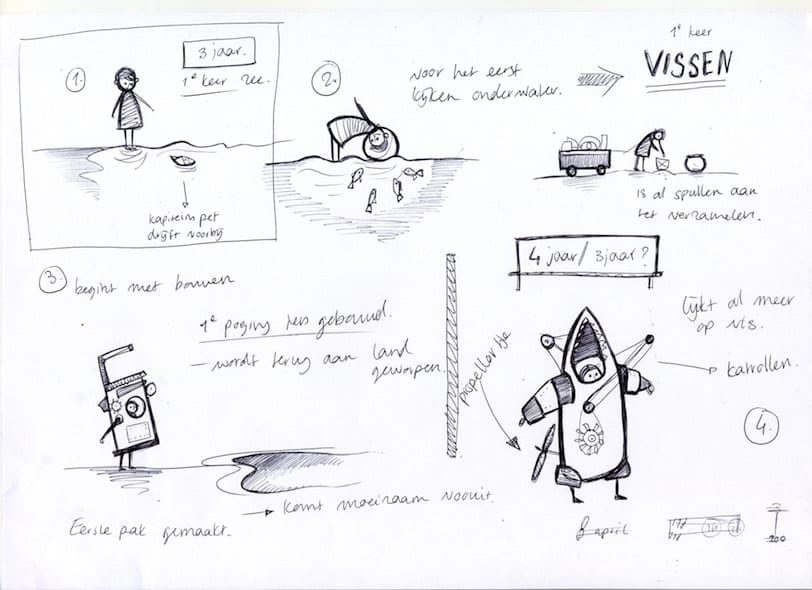 1.
3 jaar.
1e keer zee.
kapitein pet
drijft voorbij
2.
Voor het eerst
kijken onderwater.
1e keer
VISSEN
is al spullen aan
het verzamelen.
3.
begint met bouwen
1e poging iets gebouwd.
— wordt terug aan land
geworpen.
Eerste pak gemaakt.
komt moeizaam vooruit.
4 jaar / 3 jaar?
propellertje
lijkt al meer
op vis.
katrollen.
4.
8 april
200